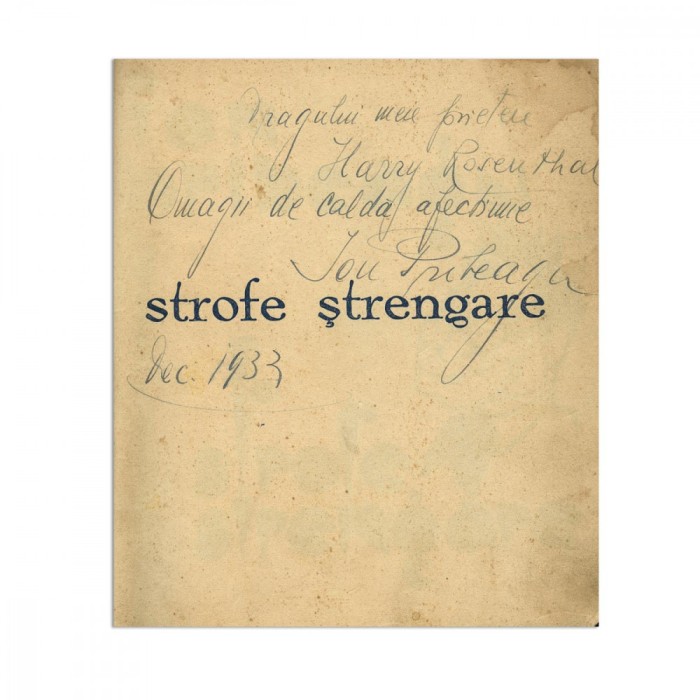 Dragului meu prieten
Harry Rosenthal
Omagii de caldă afectiune
Ion Pribeagu
strofe ştrengare
Dec. 1933